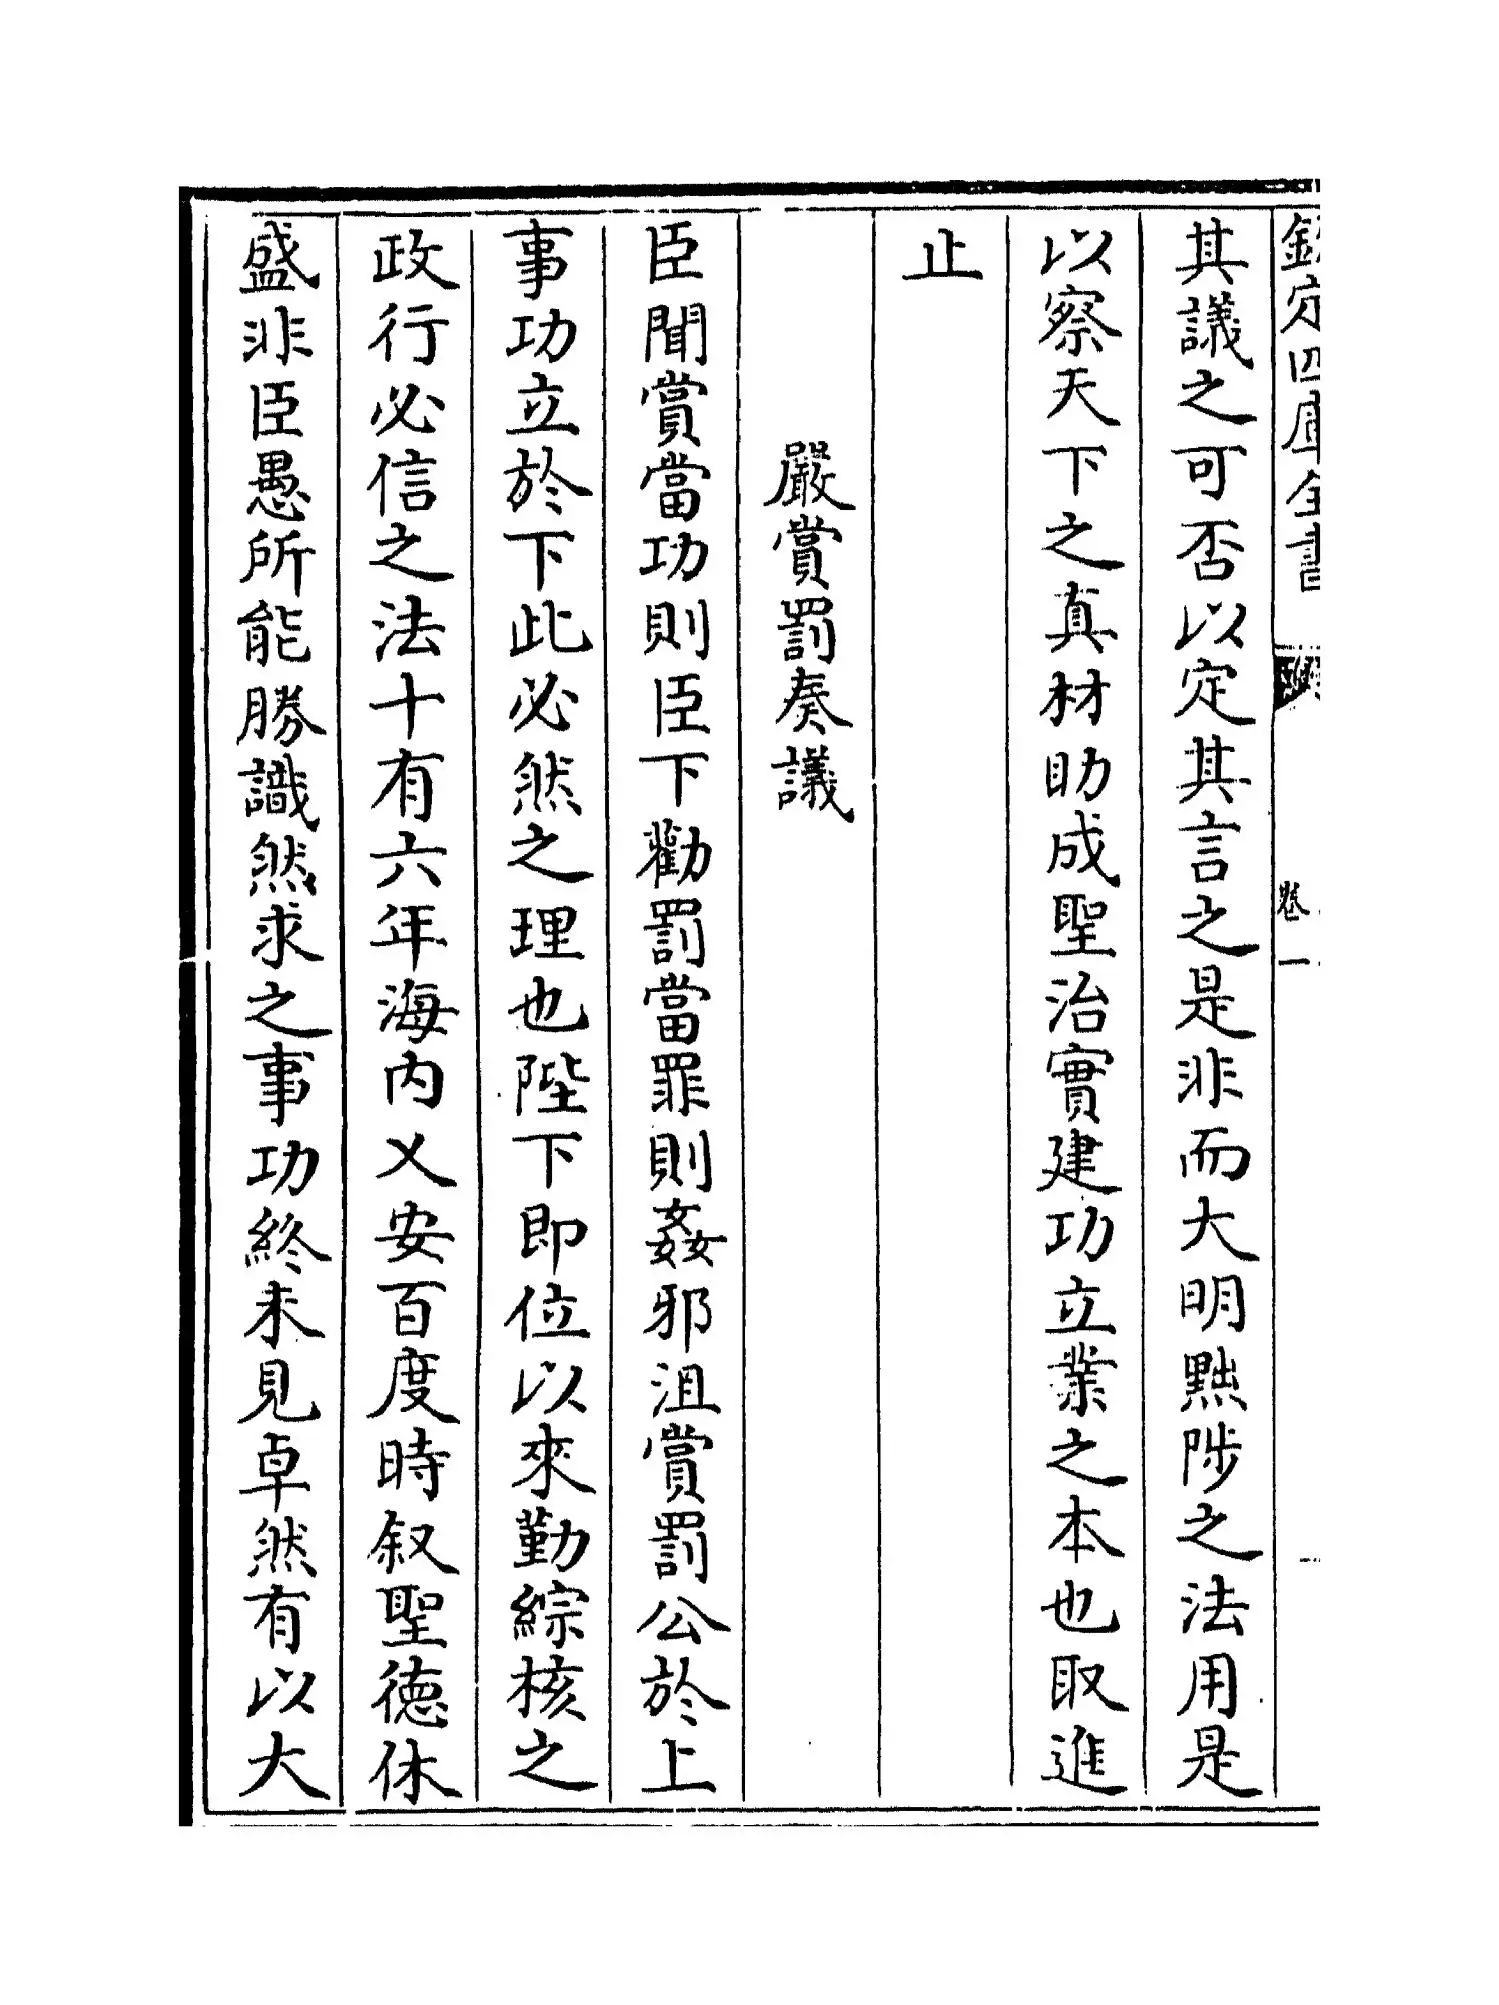 欽定四庫全書
卷一
其議之可否以定其言之是非而大明黜陟之法用是
以察天下之真材助成聖治實建功立業之本也取進
止
嚴賞罰奏議
臣聞賞當功則臣下勸罰當罪則姦邪沮賞罰公於上
事功立於下此必然之理也陛下即位以來勤綜核之
政行必信之法十有六年海内乂安百度時叙聖德休
盛非臣愚所能勝識然求之事功終未見卓然有以大